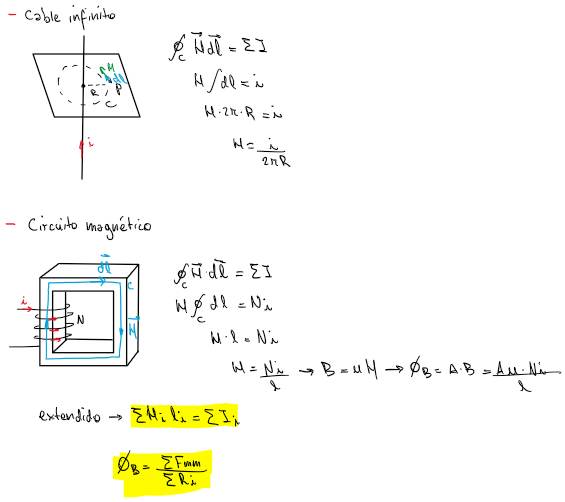 - Cable infinito
∮_C H⃗ dl⃗ = ΣI
H ∫dl = i
H · 2π · R = i
H = i / 2πR
H dl
R P
C
i
- Circuito magnético
dl⃗
C
i
N
H
∮_C H⃗ · dl⃗ = ΣI
H ∮_C dl = Ni
H · l = Ni
H = Ni / l → B = μH → Ø_B = A · B = Aμ · Ni / l
extendido → ΣH_i l_i = ΣI_i
Ø_B = ΣFmm / ΣR_i